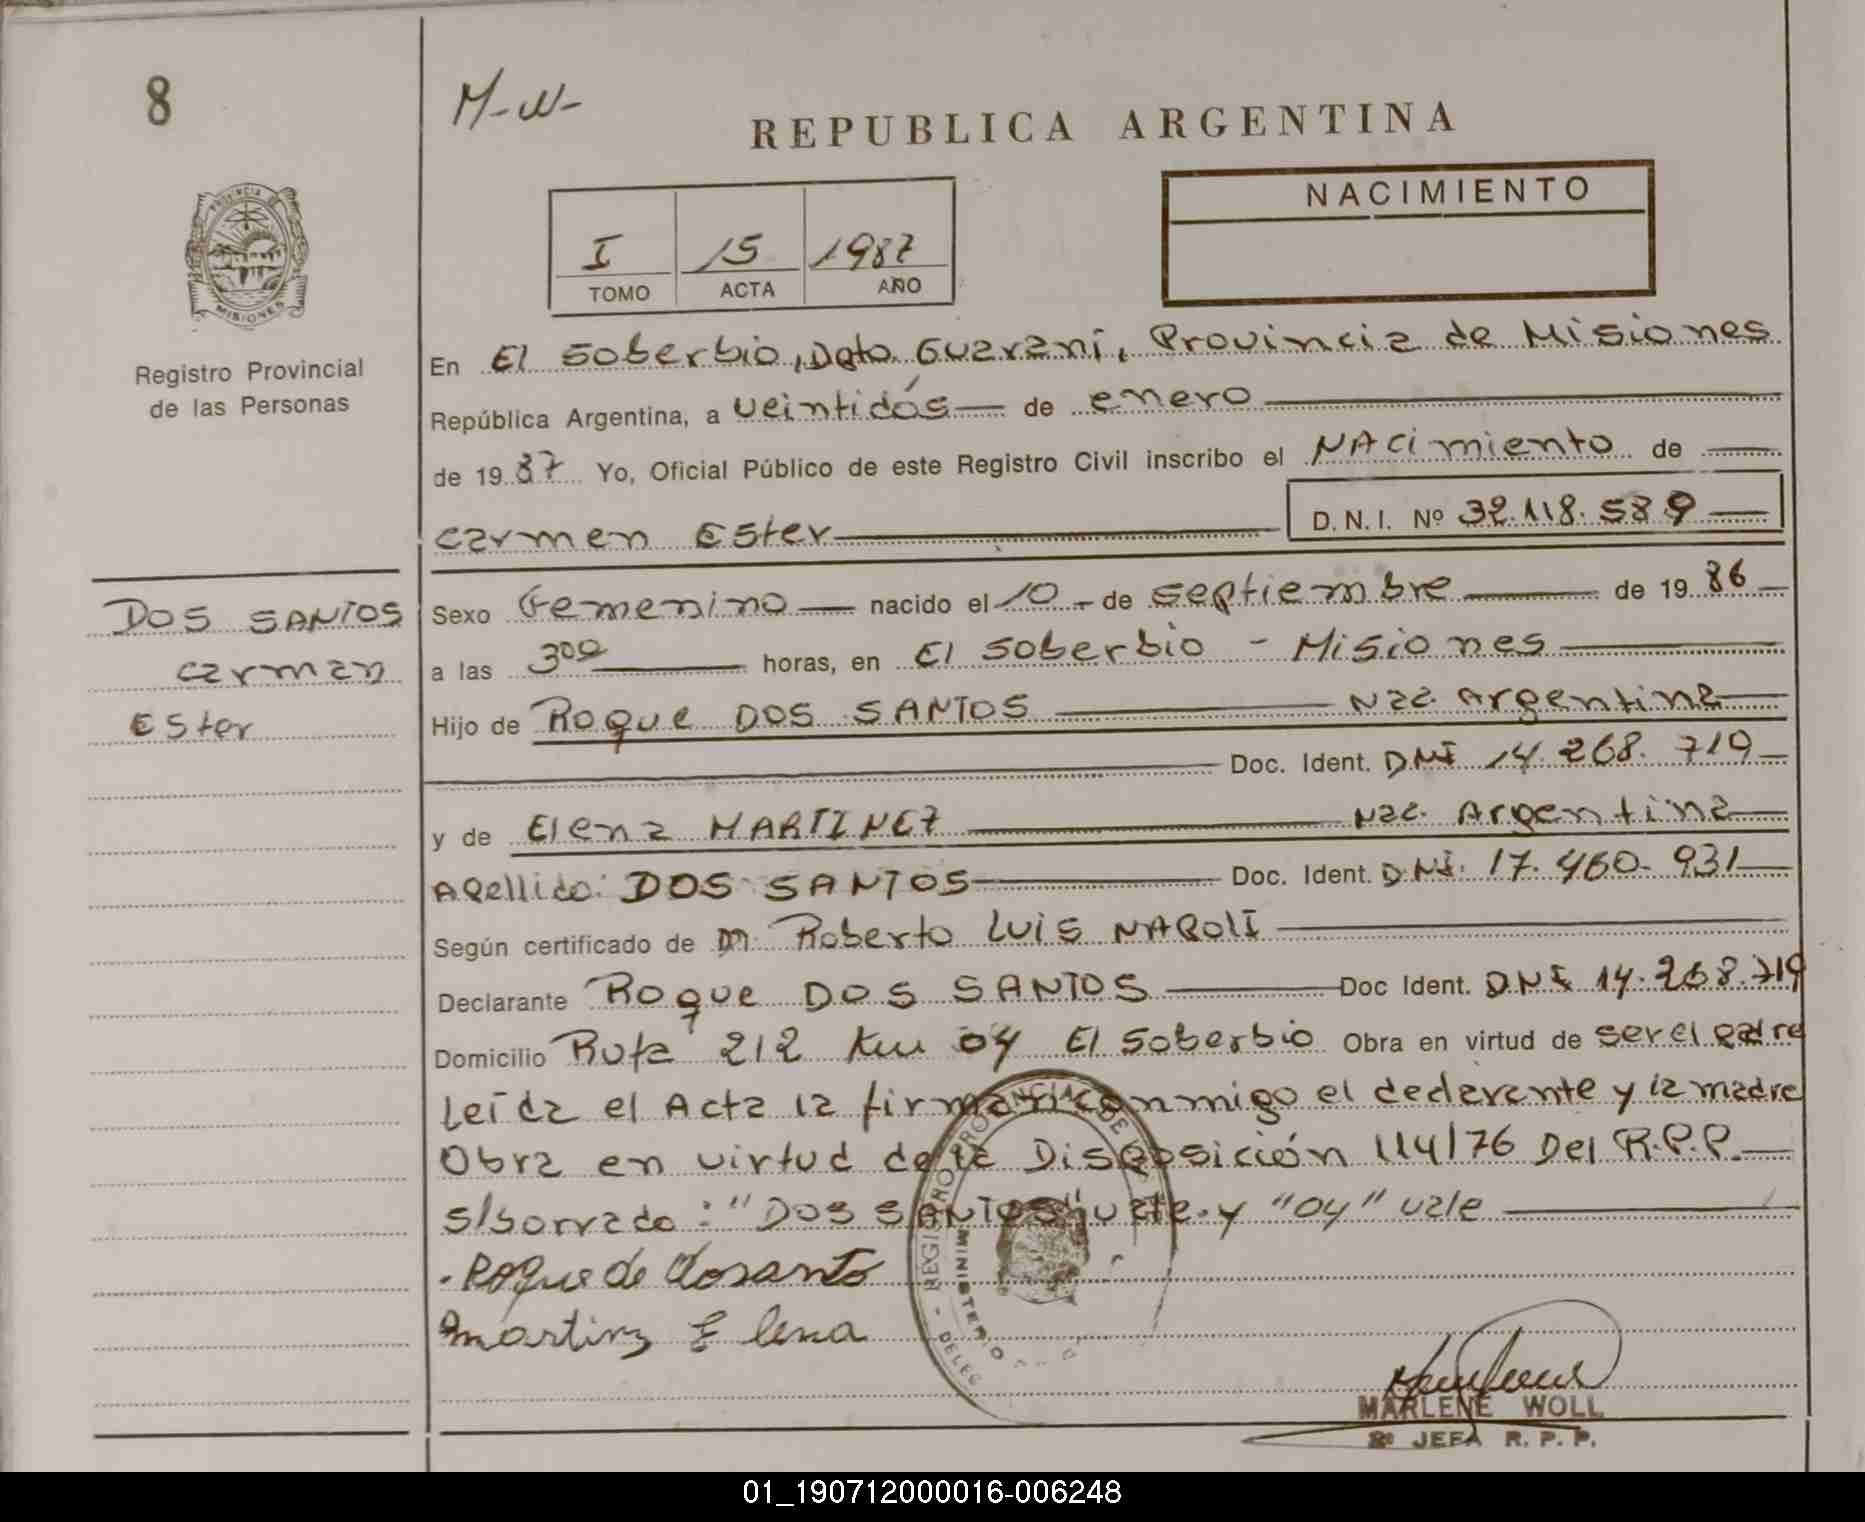 8
M-W-
REPUBLICA ARGENTINA
NACIMIENTO
I 15 1987
TOMO ACTA AÑO
PROVINCIA DE
MISIONES
Registro Provincial
de las Personas
En El Soberbio, Dpto. Guaraní, Provincia de Misiones
República Argentina, a veintidós de enero
de 19 87 Yo, Oficial Público de este Registro Civil inscribo el NACimiento de
Carmen Ester D.N.I. Nº 32.118.589
DOS SANTOS
Carmen
Ester
Sexo Femenino nacido el 10 - de septiembre de 19 86
a las 300 horas, en El Soberbio - Misiones
Hijo de Roque DOS SANTOS Nac. Argentina
Doc. Ident. DNI 14.268.719
y de Elena MARTINEZ Nac. Argentina
Apellido: DOS SANTOS Doc. Ident. DNI. 17.460.931
Según certificado de Dr. Roberto Luis NAPOLI
Declarante Roque DOS SANTOS Doc Ident. DNI 14.268.719
Domicilio Ruta 212 Km 04 El Soberbio Obra en virtud de ser el padre
Leída el Acta la firman conmigo el declarante y la madre
Obra en virtud de la Disposición 114/76 Del R.P.P.
s/borrado: "DOS SANTOS" vale y "04" vale
Roque de dosanto
Martinz Elena
REGISTRO PROVINCIAL DE
MINISTERIO
DELEG
MARLENE WOLL
2º JEFA R.P.P.
01_190712000016-006248